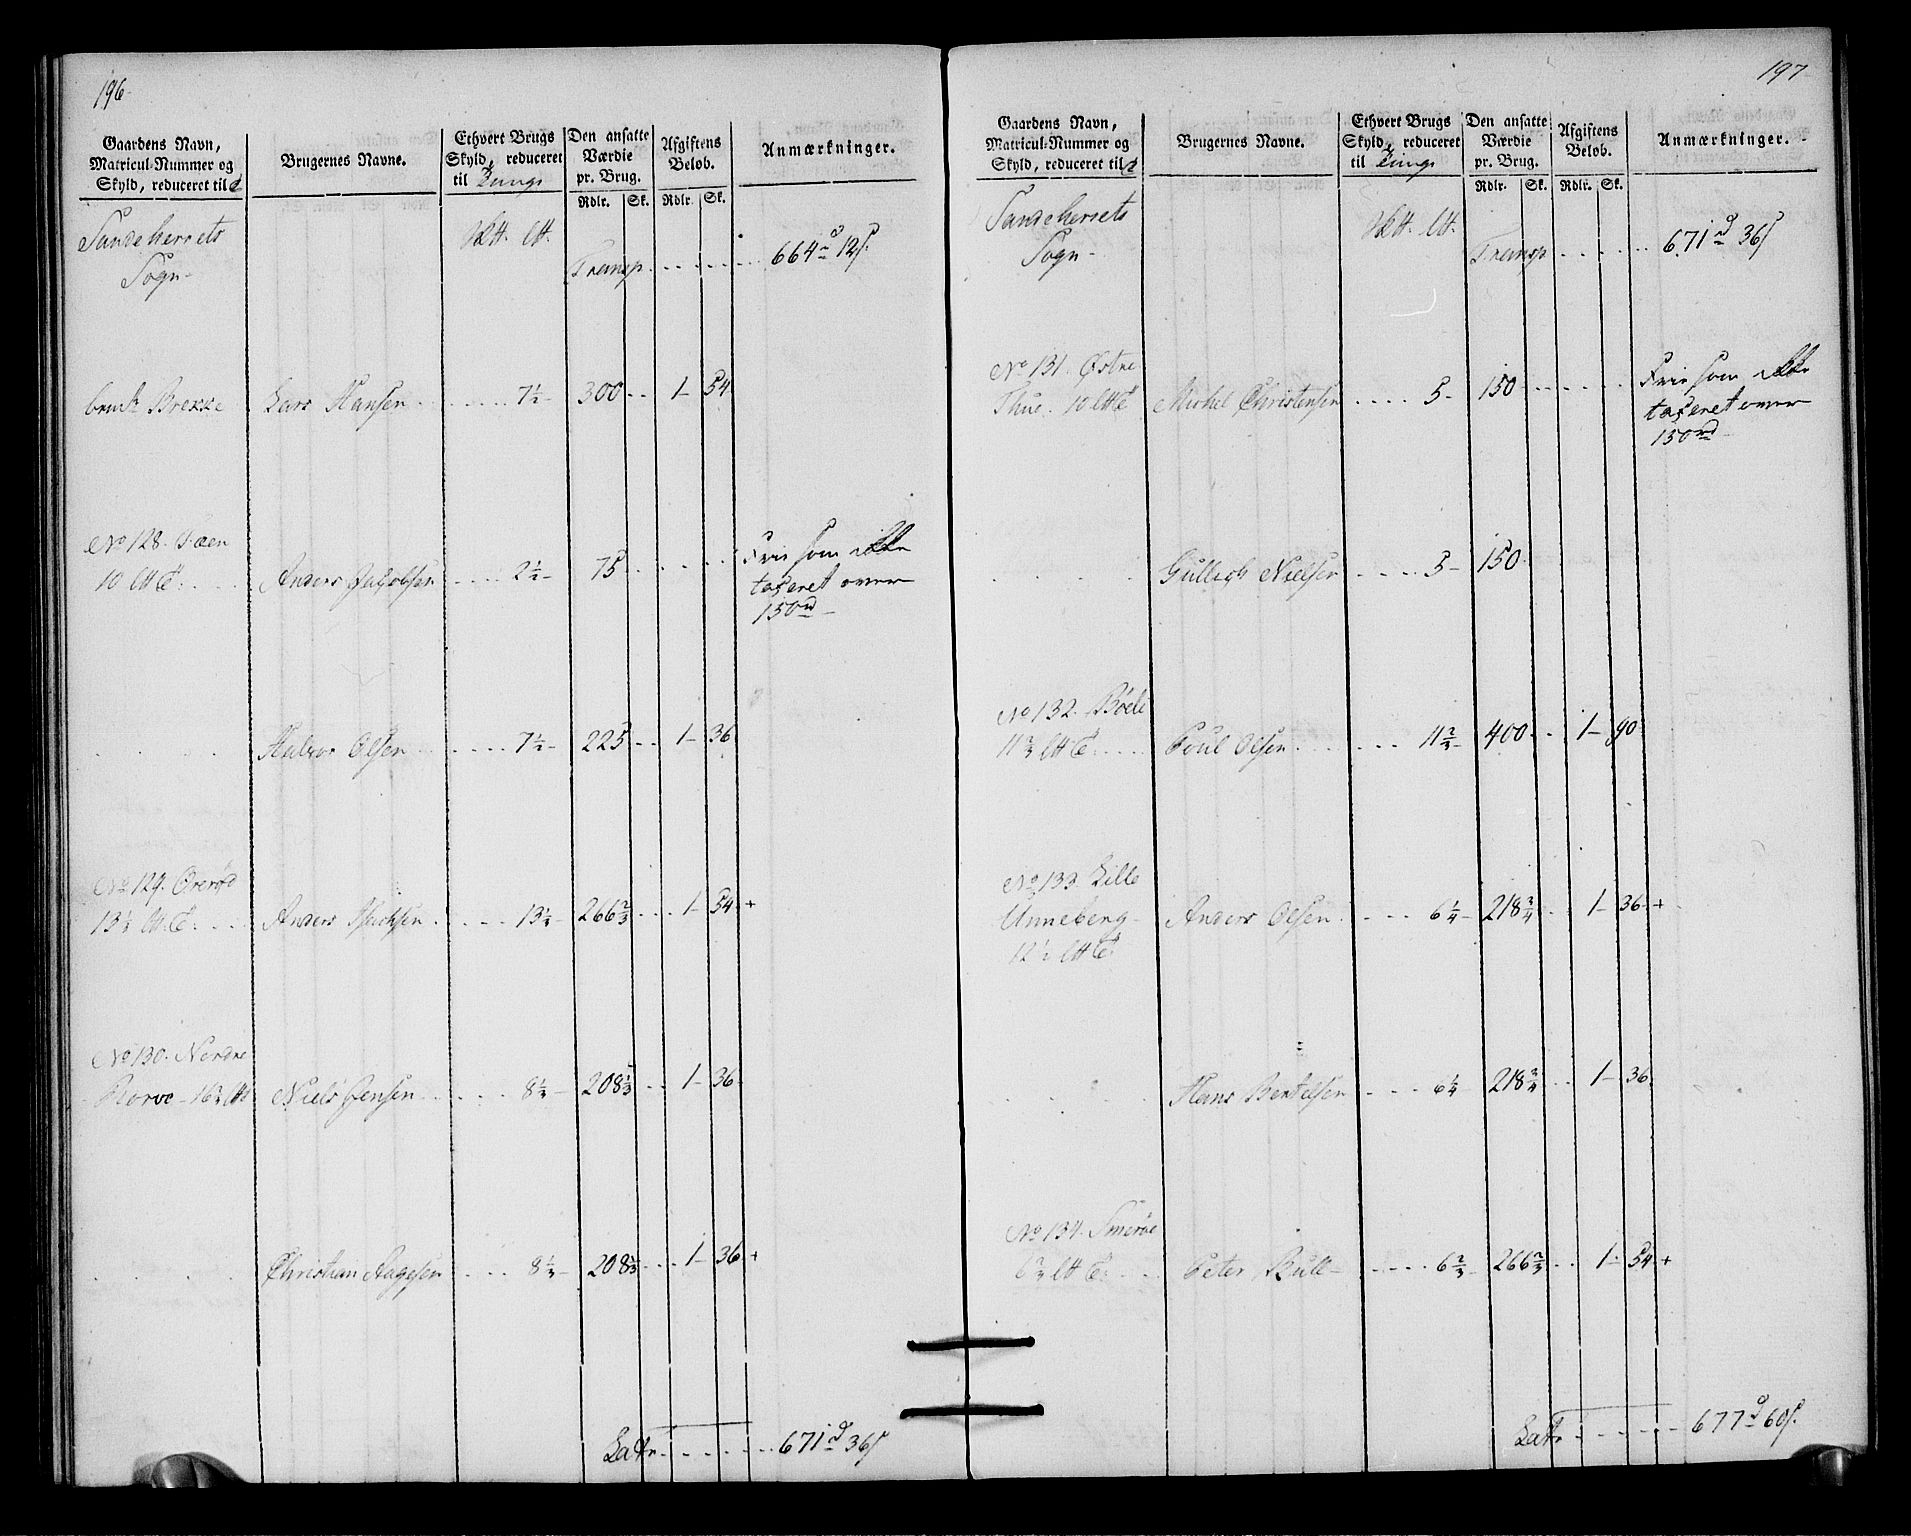 196
Gaardens Navn,
Matricul-Nummer og
Skyld, reduceret til
Brugernes Navne.
Ethvert Brugs
Skyld, reduceret
til Tunge
Den ansatte
Værdie
pr. Brug.
Rdlr. Sk.
Afgiftens
Beløb.
Rdlr. Sk.
Anmærkninger.
Sandeherrets
Sogn
Transp. 664 d 12 s.
Brekke Lars Hansen 7½ 300 1 54
No 128. Faen
10
Anders Jacobsen 2½ 75
Frie som ikke
taxeret over
150 rd
Halvor Olsen 7½ 225 1 36
No 129. Orerød
13⅓ Anders Isachsen 13⅓ 266⅔ 1 54 +
No 130. Nordre
Rorve 16⅔ Niels Jensen 8⅓ 208⅓ 1 36
Christian Aagesen 8⅓ 208⅓ 1 36 +
Latr. 671 d 36 s
197
Gaardens Navn,
Matricul-Nummer og
Skyld, reduceret til
Brugernes Navne.
Ethvert Brugs
Skyld, reduceret
til Tunge
Den ansatte
Værdie
pr. Brug.
Rdlr. Sk.
Afgiftens
Beløb.
Rdlr. Sk.
Anmærkninger.
Sandeherrets
Sogn
Transp 671 d 36 s
No 131. Østre
Thue. 10 Michel Christensen 5 150
Frie som ikke
taxeret over
150 rd
Gullich Nielsen 5 150
No 132. Bøele
11⅔ Poul Olsen 11⅔ 400 1 90
No 133 Lille
Unneberg
12½
Anders Olsen 6¼ 218¾ 1 36 +
Hans Bentelsen 6¼ 218¾ 1 36
No 134. Smørøe
6⅔ Peter Bull 6⅔ 266⅔ 1 54 +
Latr. 677 d 60 s.